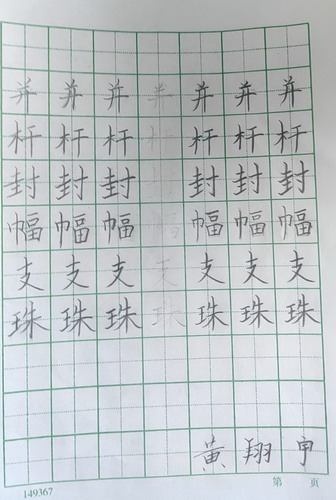 并并并并并并并
杆杆杆杆杆杆杆
封封封封封封封
幅幅幅幅幅幅幅
支支支支支支支
珠珠珠珠珠珠珠
黄翔宇
149367 第 页